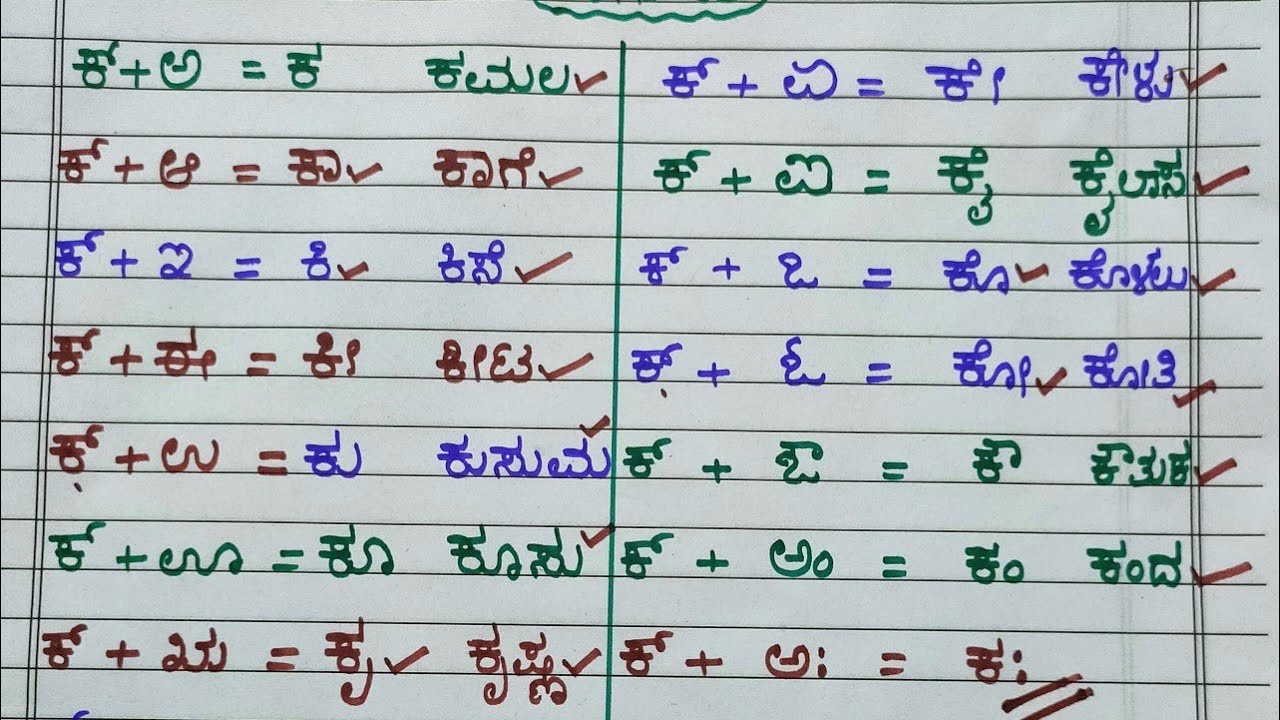 ಕ್ + ಅ = ಕ ಕಮಲ
ಕ್ + ಆ = ಕಾ ಕಾಗೆ
ಕ್ + ಇ = ಕಿ ಕಿಸೆ
ಕ್ + ಈ = ಕೀ ಕೀಟ
ಕ್ + ಉ = ಕು ಕುಸುಮ
ಕ್ + ಊ = ಕೂ ಕೂಸು
ಕ್ + ಋ = ಕೃ ಕೃಷ್ಣ
ಕ್ + ಏ = ಕೇ ಕೇಳು
ಕ್ + ಐ = ಕೈ ಕೈಲಾಸ
ಕ್ + ಒ = ಕೊ ಕೊಳಲು
ಕ್ + ಓ = ಕೋ ಕೋತಿ
ಕ್ + ಔ = ಕೌ ಕೌತುಕ
ಕ್ + ಅಂ = ಕಂ ಕಂದ
ಕ್ + ಅಃ = ಕಃ